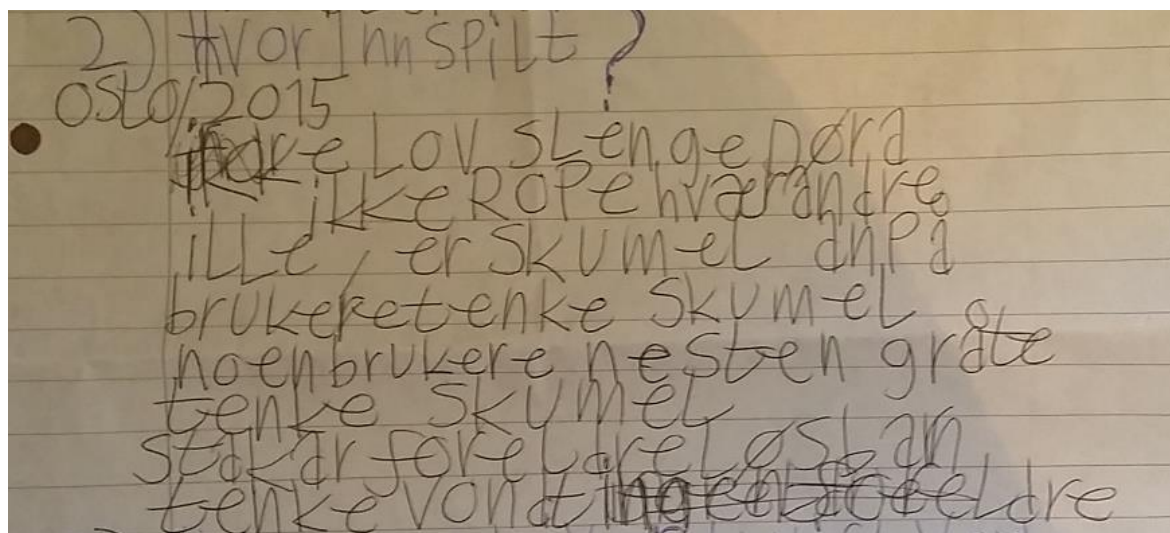 2) Hvor Innspilt?
OSLO/2015
Lov slenge Døra
ikke Rope hværandre
ille, er skumel
brukere tenke skumel
noen brukere nesten gråte
tenke skumel
stakar foreldreløsban
tenke vondt